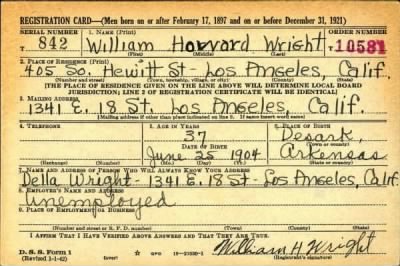 REGISTRATION CARD—(Men born on or after February 17, 1897 and on or before December 31, 1921)
SERIAL NUMBER 1. NAME (Print) ORDER NUMBER
T 842 William Howard Wright T 10581
(First) (Middle) (Last)
2. PLACE OF RESIDENCE (Print)
405 So. Hewitt St- Los Angeles, Calif.
(Number and street) (Town, township, village, or city) (County) (State)
[THE PLACE OF RESIDENCE GIVEN ON THE LINE ABOVE WILL DETERMINE LOCAL BOARD
JURISDICTION; LINE 2 OF REGISTRATION CERTIFICATE WILL BE IDENTICAL]
3. MAILING ADDRESS
1341 E. 18 St. Los Angeles, Calif.
[Mailing address if other than place indicated on line 2. If same insert word same]
4. TELEPHONE 5. AGE IN YEARS 6. PLACE OF BIRTH
37 Desark,
DATE OF BIRTH (Town or county)
June 25 1904 Arkansas
(Exchange) (Number) (Mo.) (Day) (Yr.) (State or country)
7. NAME AND ADDRESS OF PERSON WHO WILL ALWAYS KNOW YOUR ADDRESS
Della Wright - 1341 E. 18 St - Los Angeles, Calif.
8. EMPLOYER'S NAME AND ADDRESS
Unemployed
9. PLACE OF EMPLOYMENT OR BUSINESS
(Number and street or R. F. D. number) (Town) (County) (State)
I AFFIRM THAT I HAVE VERIFIED ABOVE ANSWERS AND THAT THEY ARE TRUE.
D. S. S. Form 1 GPO William H. Wright
(Revised 1-1-42) (over) (Registrant's signature)